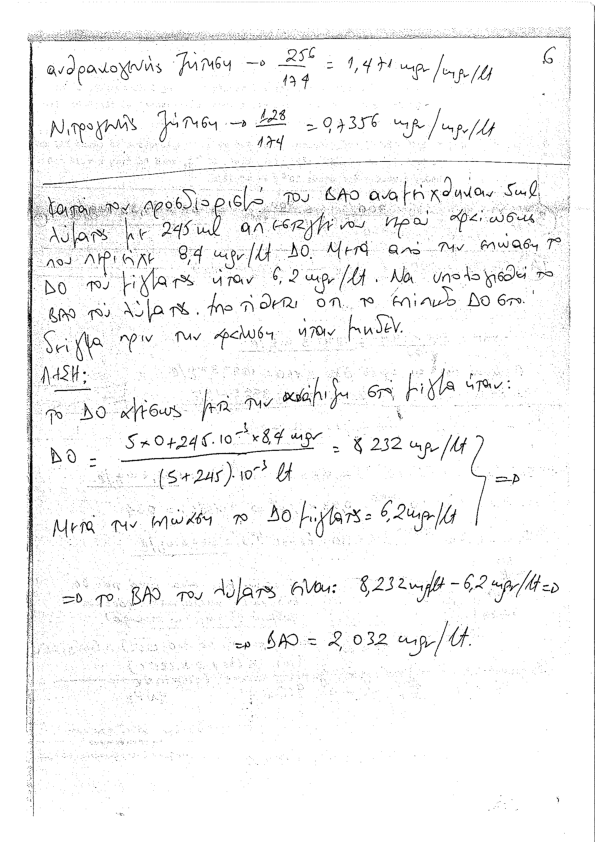 6
ανθρακογενής ζήτηση → 256/174 = 1,471 mgr/mgr/lt
Νιτρογενής ζήτηση → 128/174 = 0,7356 mgr/mgr/lt
Κατά τον προσδιορισμό του ΒΑΟ αναμίχθηκαν 5ml
λύματος με 245 ml απεσταγμένου νερού αραιώσεως
που περιείχε 8,4 mgr/lt ΔΟ. Μετά από την επώαση το
ΔΟ του μίγματος ήταν 6,2 mgr/lt. Να υπολογισθεί το
ΒΑΟ του λύματος. Υποτίθεται ότι το επίπεδο ΔΟ στο
δείγμα πριν την αραίωση ήταν μηδέν.
ΛΥΣΗ:
το ΔΟ αμέσως μετά την ανάμιξη στο μίγμα ήταν:
ΔΟ = 5×0+245.10⁻³×8,4 mgr / (5+245).10⁻³ lt = 8,232 mgr/lt
Μετά την επώαση το ΔΟ μίγματος = 6,2 mgr/lt } ⇒
⇒ το ΒΑΟ του λύματος είναι: 8,232 mgr/lt - 6,2 mgr/lt ⇒
⇒ ΒΑΟ = 2,032 mgr/lt.